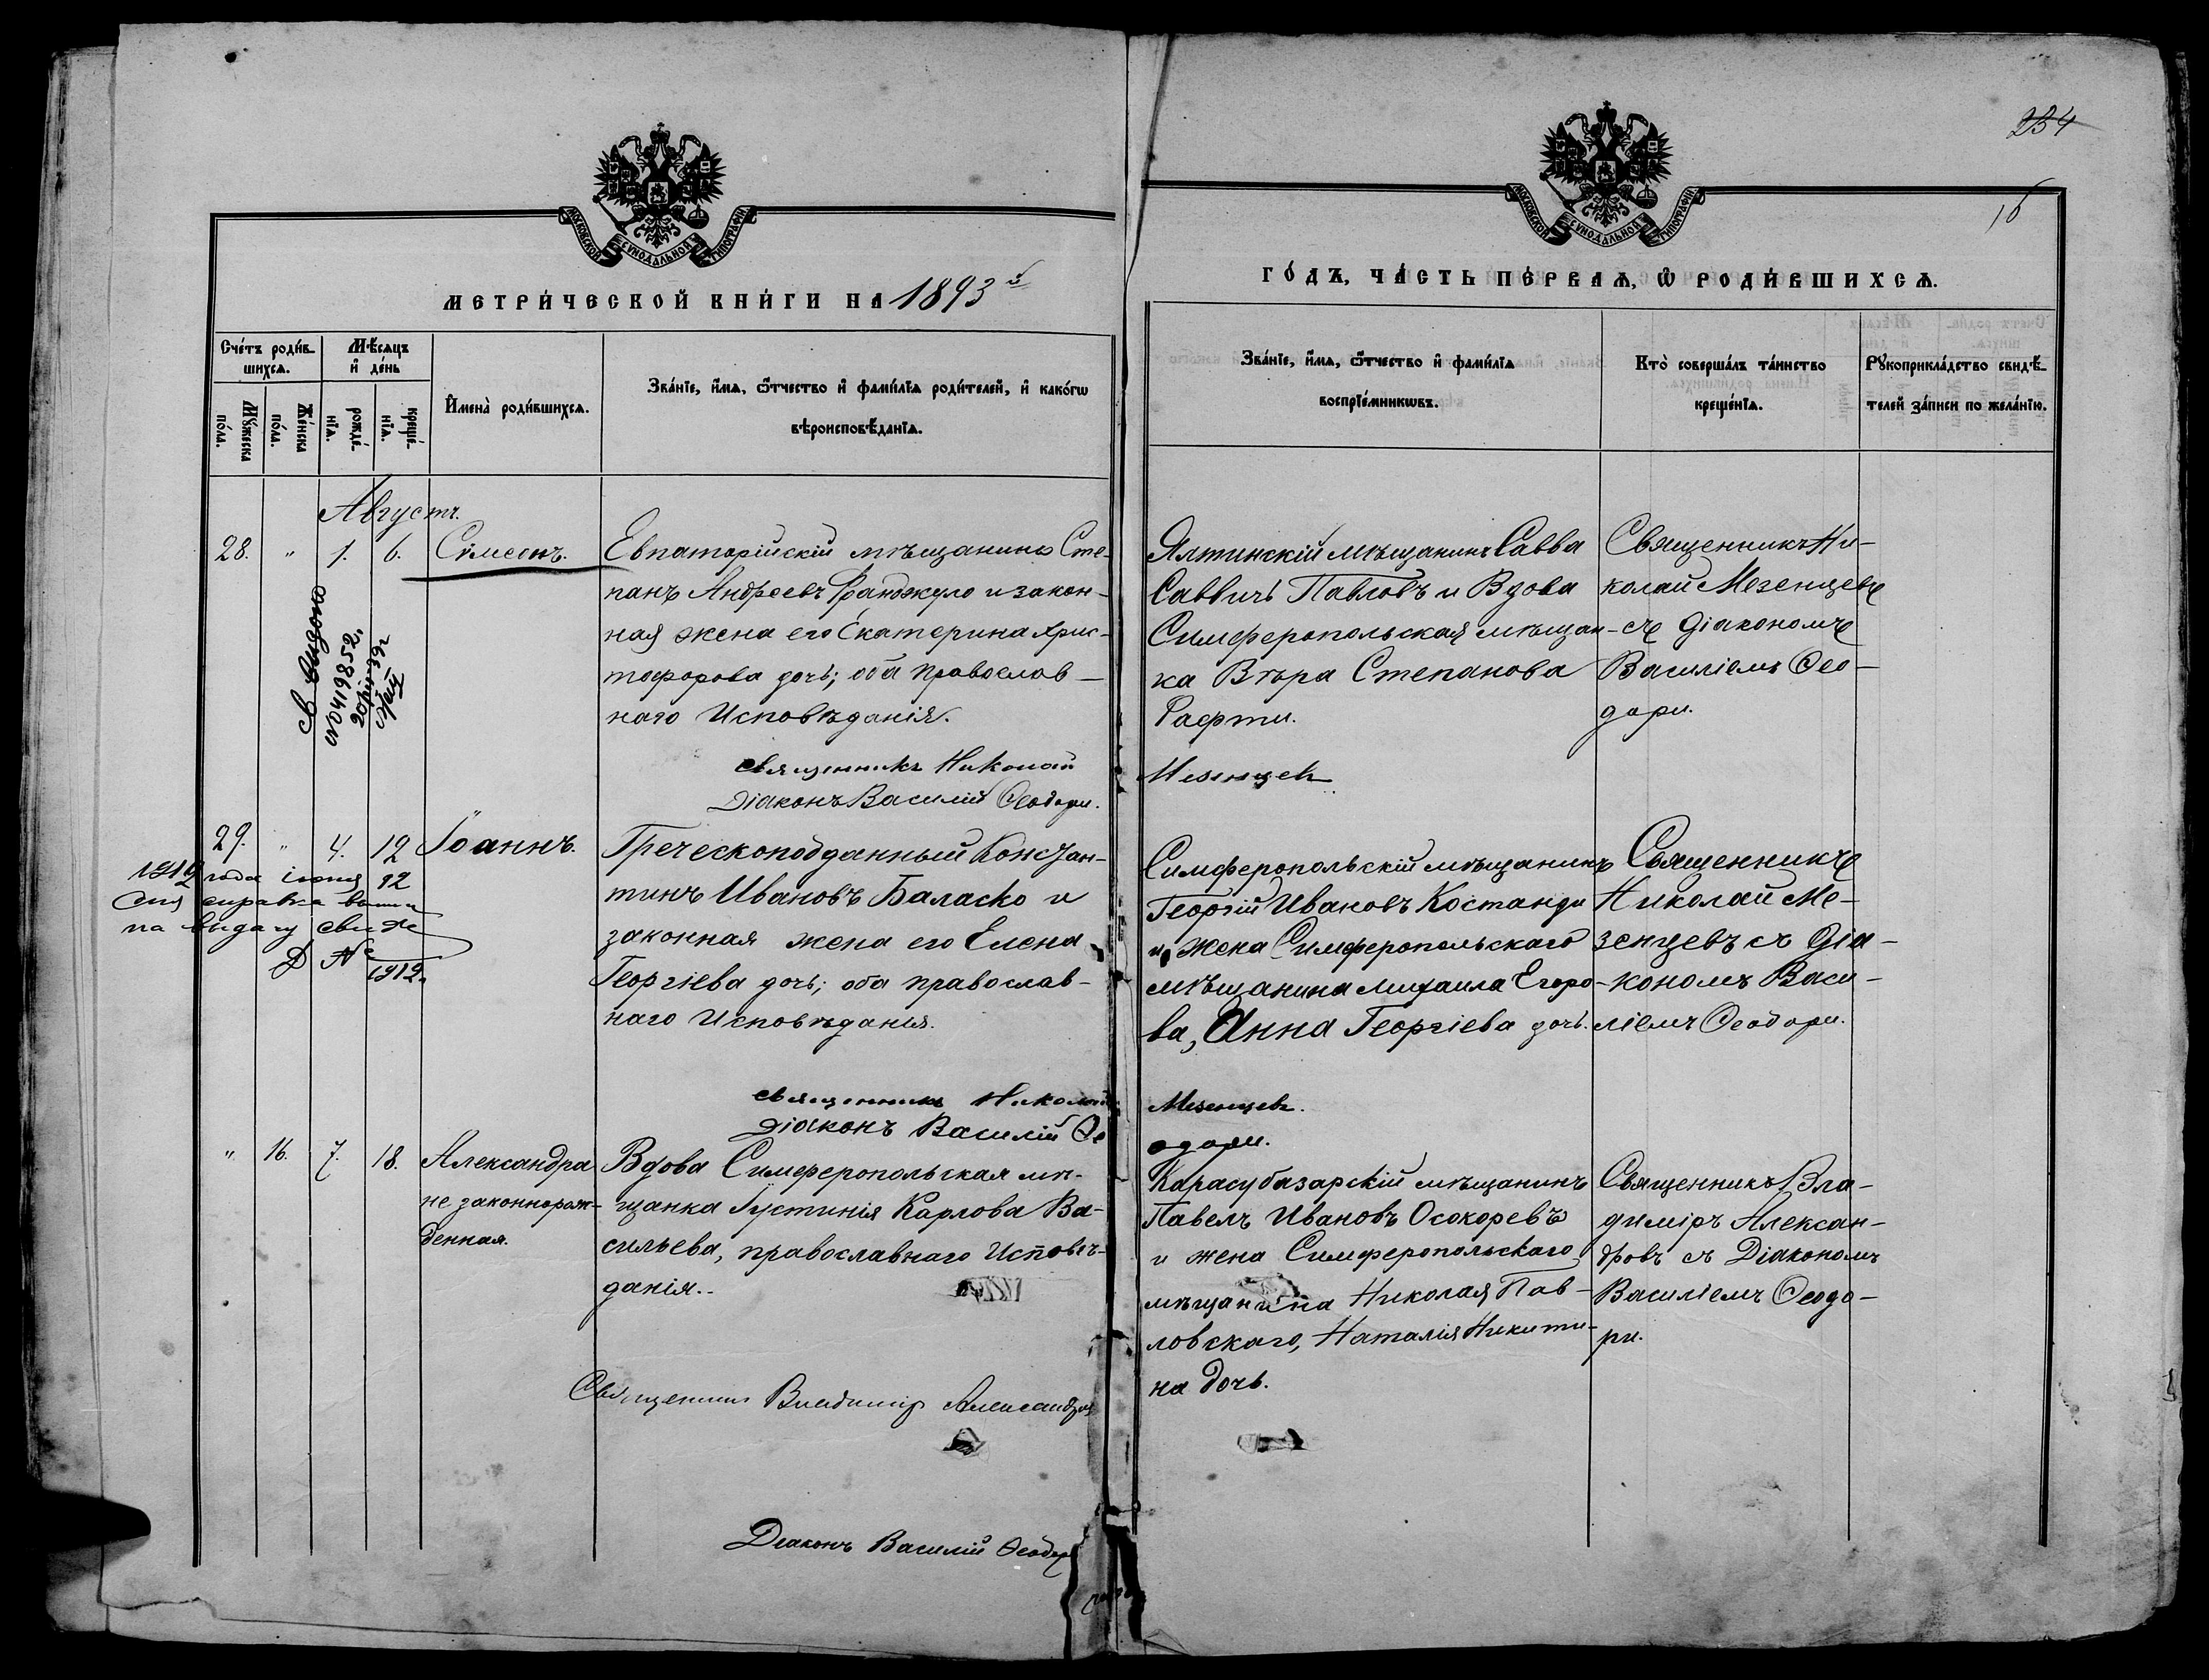 234
16
МОСКОВСКОЙ СѴНОДАЛЬНОЙ ТИПОГРАФІИ
МЕТРИ́ЧЕСКОЙ КНИ́ГИ НА 1893 й
Сче́тъ роди́в-
шихся.
Мѣ́сяцъ
и҆ де́нь
Мꙋ́жеска
по́ла.
Же́нска
по́ла.
рожде́-
нїя.
креще́-
нїя.
И҆мена̀ роди́вшихся.
Зва́нїе, и҆́мя, ѻ҆́тчество и҆ фами́лїя роди́телей, и҆ како́гѡ
вѣроисповѣ́данїя.
Августъ.
28. " 1. 6. Сѷмеонъ.
Евпаторійскій мѣщанинъ Сте-
панъ Андреевъ Франджуло и закон-
ная жена его Екатерина Хрис-
тофорова дочь; оба православ-
наго Исповѣданія.
Св выдано
№ 0419852,
священникъ Николай
Діаконъ Василій Ѳеодори.
29. " 4. 12 Іоаннъ.
Греческоподданный Констан-
тинъ Ивановъ Баласко и
законная жена его Елена
Георгіева дочь; оба православ-
наго Исповѣданія.
1912 года іюня 12
дня справка
на выдачу свид
№
1912.
священникъ Николай
Діаконъ Василій Ѳе
" 16. 7. 18. Александра
незаконнорож-
денная.
Вдова Симферопольская мѣ-
щанка Іустинія Карлова Ва-
сильева, православнаго Исповѣ-
данія.
Священникъ Владиміръ Александровъ
Діаконъ Василій Ѳеодори
МОСКОВСКОЙ СѴНОДАЛЬНОЙ ТИПОГРАФІИ
ГО́ДЪ, ЧА́СТЬ ПЕ́РВАЯ, Ѡ҆ РОДИ́ВШИХСЯ.
Зва́нїе, и҆́мя, ѻ҆́тчество и҆ фами́лїя
воспрїе́мникѡвъ.
Кто̀ соверша́лъ та́инство
креще́нїя.
Рꙋкоприкла́дство свидѣ́-
телей за́писи по жела́нїю.
Ялтинскій мѣщанинъ Савва
Саввичъ Павловъ и Вдова
Симферопольская мѣщан-
ка Вѣра Степанова
Рафти.
Священникъ Ни-
колай Мезенцевъ
съ Діакономъ
Василіемъ Ѳео-
дори.
Мезенцевъ
Симферопольскій мѣщанинъ
Георгій Ивановъ Костанди
и жена Симферопольскаго
мѣщанина Михаила Егоро-
ва, Анна Георгіева дочь.
Священникъ
Николай Ме-
зенцевъ съ Діа-
кономъ Васи-
ліемъ Ѳеодори.
Мезенцевъ.
одори.
Карасубазарскій мѣщанинъ
Павелъ Ивановъ Осокоревъ
и жена Симферопольскаго
мѣщанина Николая Пав-
ловскаго, Наталія Никити-
на дочь.
Священникъ Вла-
диміръ Алексан-
дровъ съ Діакономъ
Василіемъ Ѳеодо-
ри.